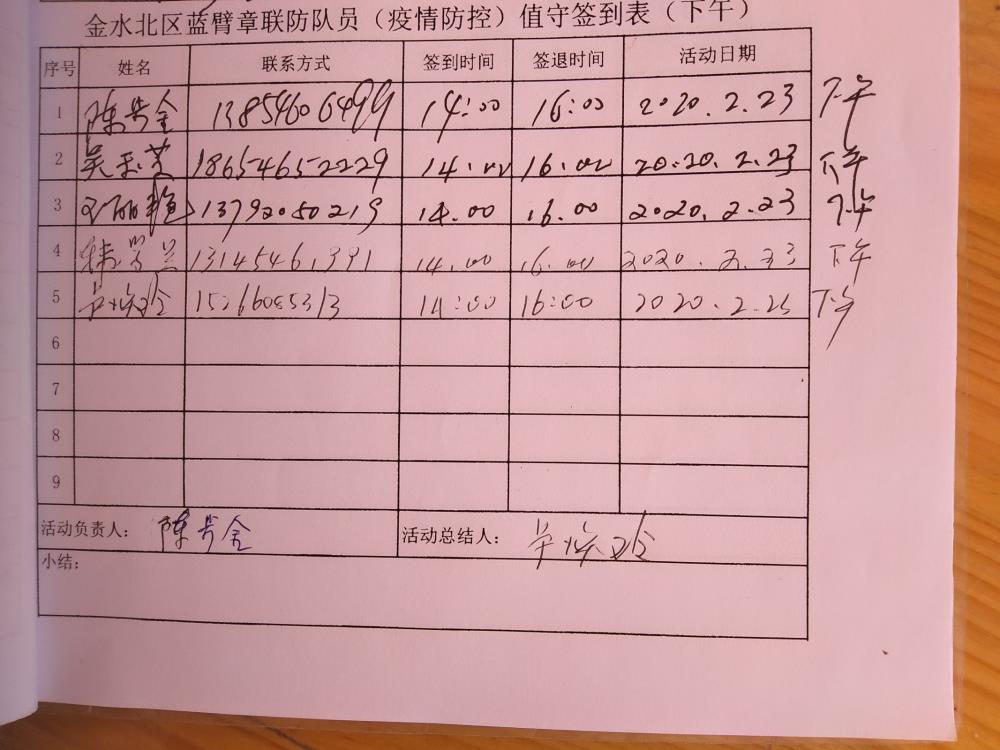 金水北区蓝臂章联防队员（疫情防控）值守签到表（下午）
序号 姓名 联系方式 签到时间 签退时间 活动日期
1 陈 金 13854606499 14:00 16:00 2020.2.23 下午
2 吴 18654652229 14.00 16.00 2020.2.23 下午
3 丽艳 13792050219 14.00 16.00 2020.2.23 下午
4 兰 13145461991 14.00 16.00 2020.2.23 下午
5 15266085313 14:00 16:00 2020.2.23 下午
6
7
8
9
活动负责人： 陈 金 活动总结人：
小结：